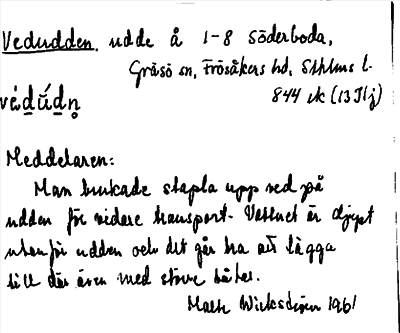 Vedudden, udde å 1-8 Söderboda,
Gräsö sn, Frösåkers hd, Sthlms l.
844 vk (13I1 j)
Meddelaren:
Man brukade stapla upp ved på
udden för vidare transport. Vattnet är djupt
utanför udden och det går bra att lägga
till där även med större båtar.
1961